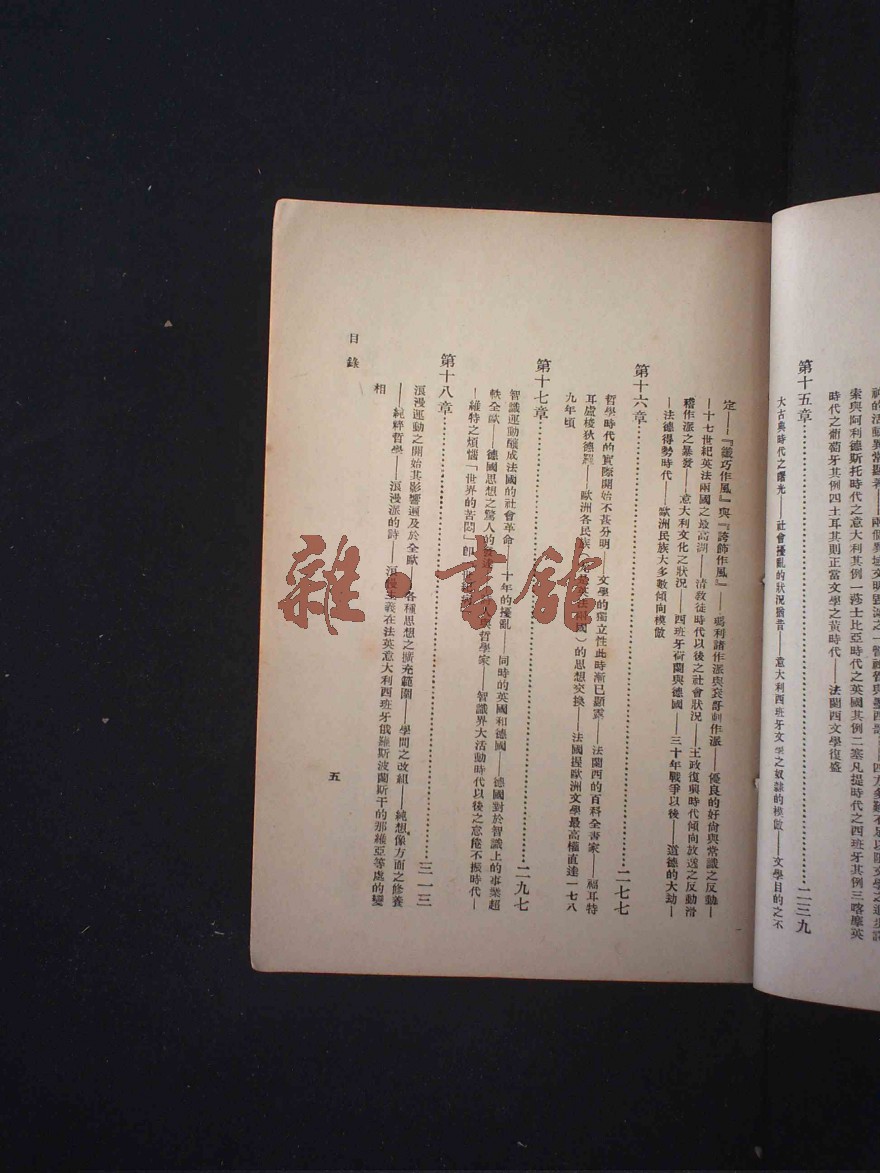 時代之葡萄牙其例四土耳其則正當文學之黃時代——法蘭西文學復盛
索與阿利德斯托時代之意大利其例一莎士比亞時代之英國其例二塞凡提時代之西班牙其例三喀麼英
第十五章 二三九
大古典時代之曙光——社會擾亂的狀況猶昔——意大利西班牙文學之奴隸的模倣——文學目的之不
定——『纖巧作風』與『誇飾作風』——瑪利諸作派與袞哥刺作派——優良的好尙與常識之反動—
—十七世紀英法兩國之最高湖——清敎徒時代以後之社會狀況——王政復興時代傾向放逸之反動滑
稽作派之暴發——意大利文化之狀況——西班牙荷蘭與德國——三十年戰爭以後——道德的大劫—
—法德得勢時代——歐洲民族大多數傾向模倣
第十六章 二七七
哲學時代的實際開始不甚分明——文學的獨立性此時漸已顯露——法蘭西的百科全書家——福耳特
耳盧梭狄德羅——歐洲各民族 英法兩國）的思想交換——法國握歐洲文學最高權直達一七八
九年頃
第十七章 二九七
智識運動釀成法國的社會革命——十年的擾亂——同時的英國和德國——德國對於智識上的事業超
軼全歐——德國思想之驚人的 人與哲學家——智識界大活動時代以後之怠倦不振時代—
—維特之煩惱「世界的苦悶」卽
第十八章 三一三
浪漫運動之開始其影響遍及於全歐——各種思想之擴充範圍——學問之改組——純想像方面之修養
——純粹哲學——浪漫派的詩——浪漫主義在法英意大利西班牙俄羅斯波蘭斯干的那維亞等處的變
相
目錄
五
雜·書館